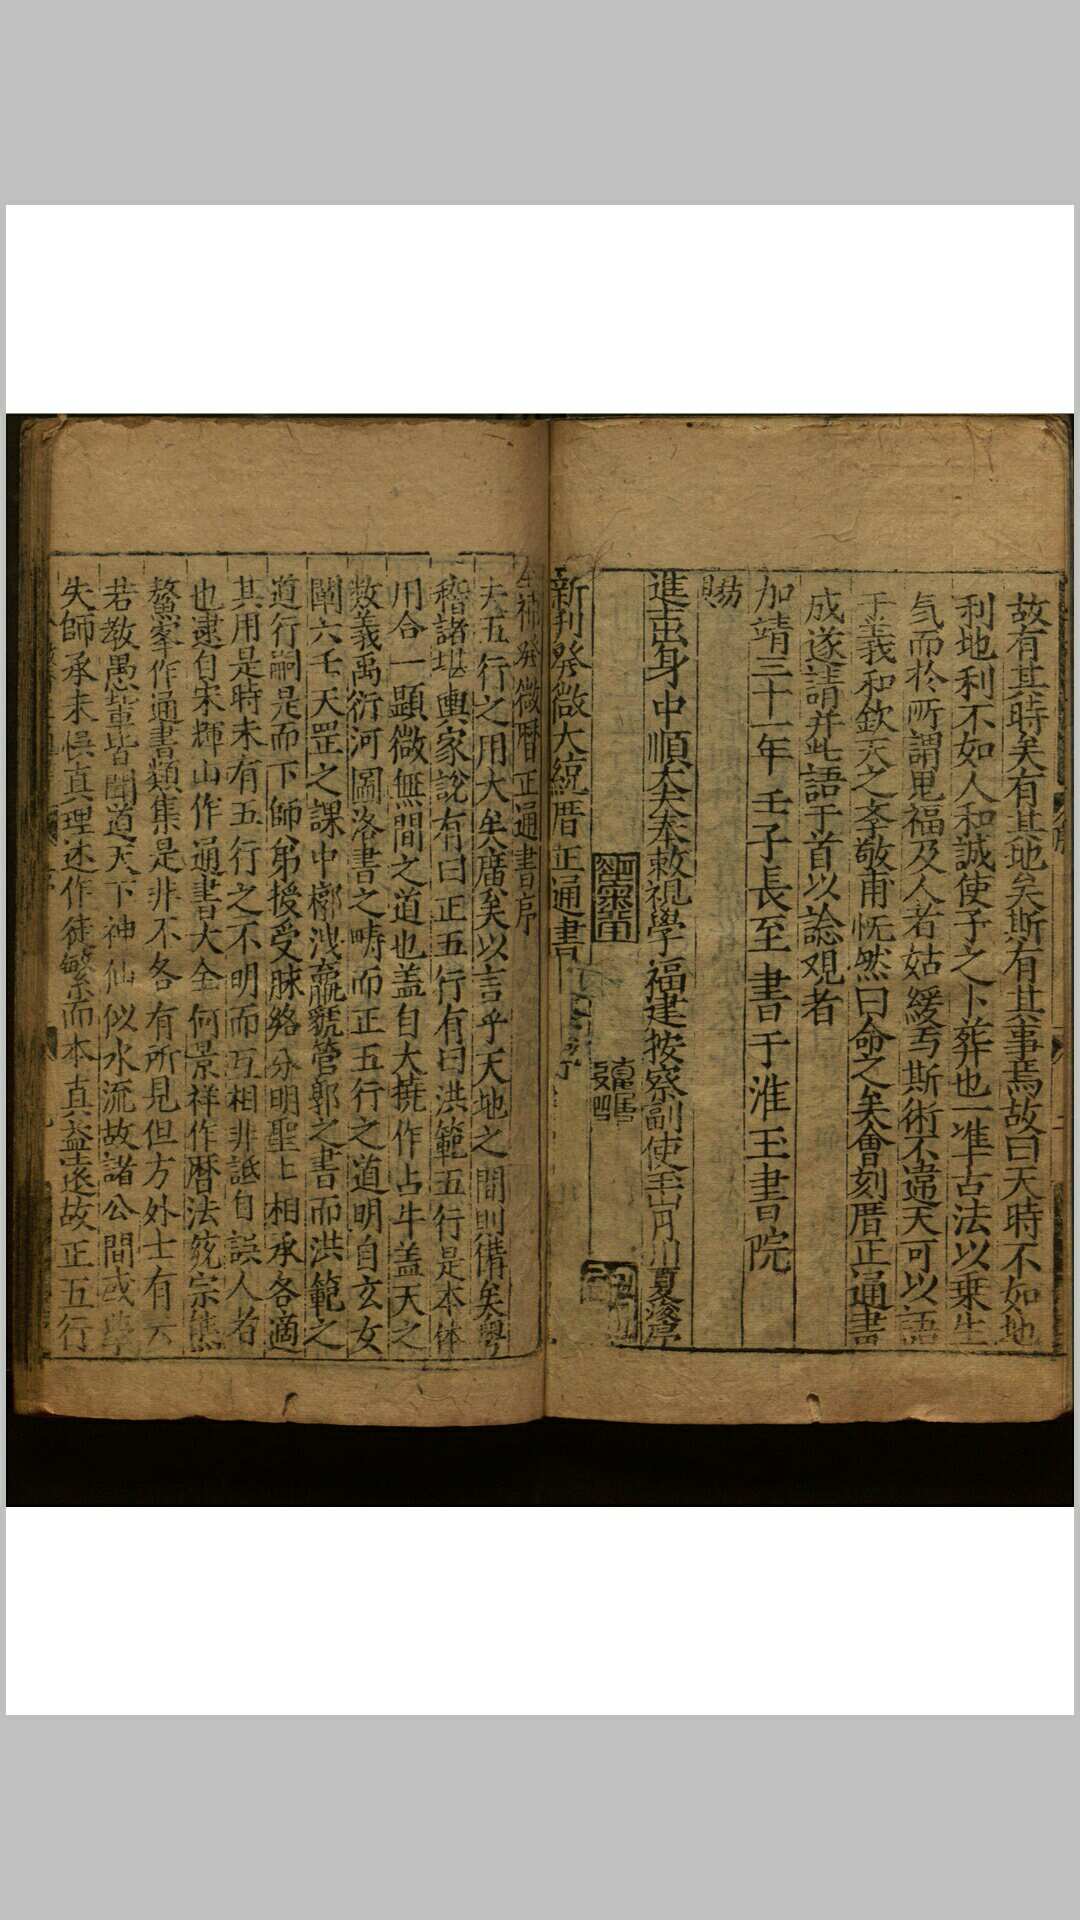 故有其時矣有其地矣斯有其事焉故曰天時不如地
利地利不如人和誠使予之卜葬也一准古法以乗生
氣而於所謂鬼福及人者姑緩焉斯術不違天可以語
于羲和欽天之李敬甫怃然曰命之矣會刻厝正通書
成遂請并此語于首以諗观者
加靖三十一年壬子長至書于淮王書院
賜
進士出身中順大夫奉敕視學福建按察副使玉山月川夏浚序
新刊發微大統厝正通書
微曆正通書序
夫五行之用大矣廣矣以言乎天地之間則備矣學
稽諸堪輿家說有曰正五行有曰洪範五行是本体
用合一顕微無間之道也盖自大撓作占牛盖天之
数義禹衍河圖洛書之疇而正五行之道明自玄女
闡六壬天罡之課中櫛洩贏毓管郭之書而洪範之
道行嗣是而下師弟授受脉絡分明聖上相承各適
其用是時未有五行之不明而互相非詆自誤人者
也逮自宋輝山作通書大全何景祥作曆法統宗熊
鰲峯作通書類集是非不各有所見但方外士有
若教愚輩皆聞道天下神仙似水流故諸公間或學
失師承未惧真理述作徒繁而本真益遠故正五行